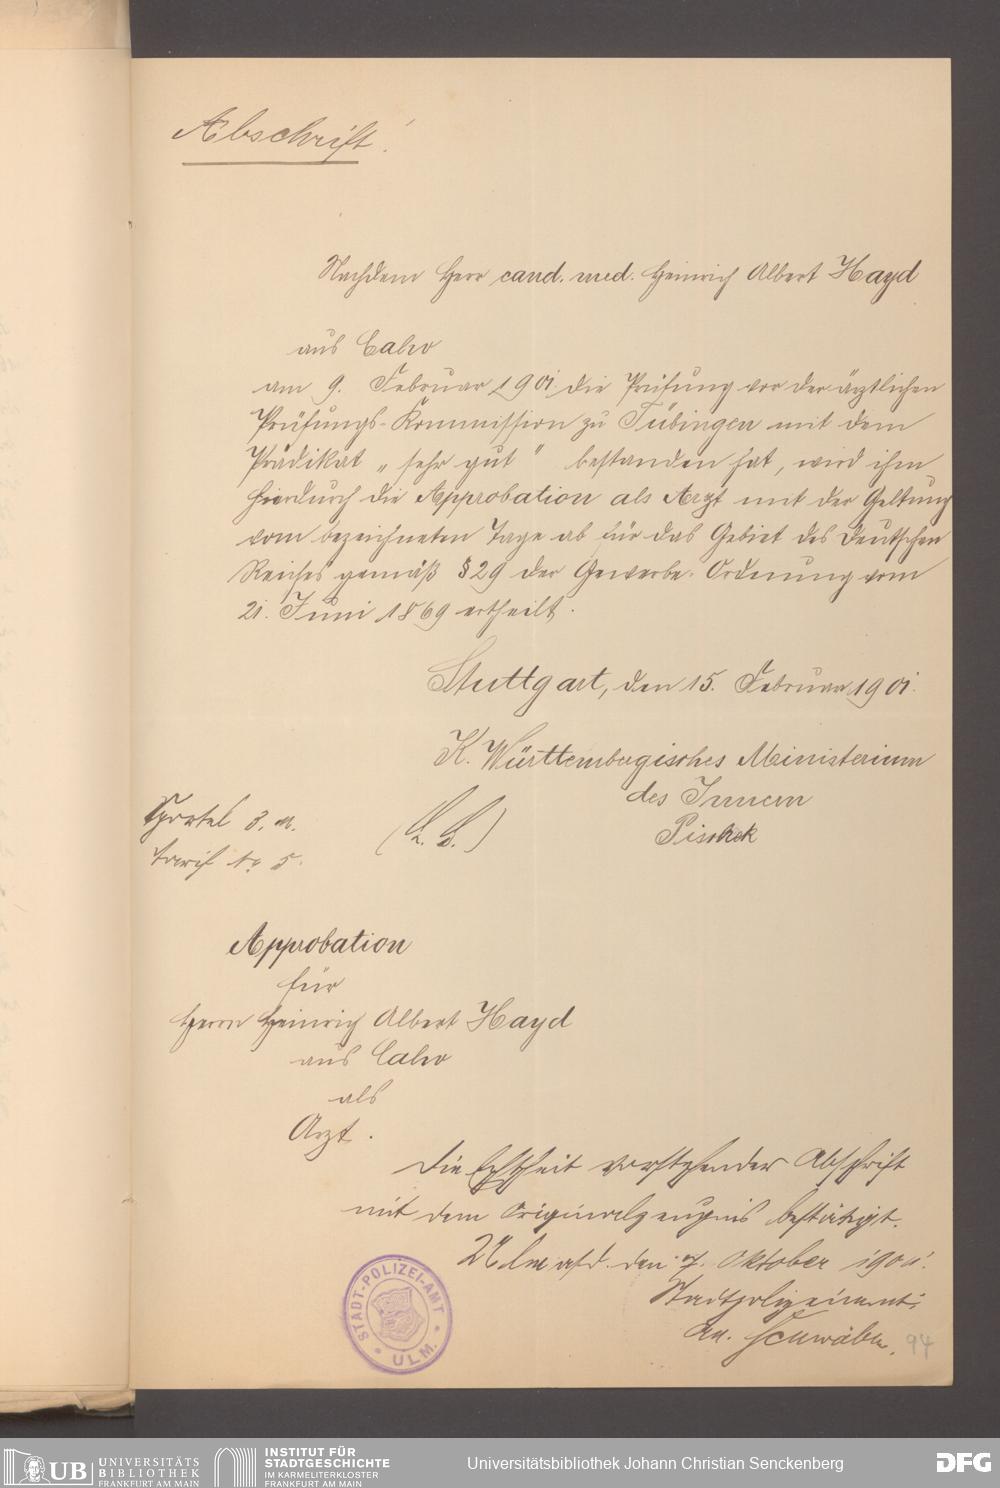 Abschrift!
Nachdem Herr cand. med. Heinrich Albert Hayd
aus Calw
am 9. Februar 1901 die Prüfung vor der ärztlichen
Prüfungs-Kommission zu Tübingen mit dem
Prädikat „sehr gut" bestanden hat, wird ihm
hierdurch die Approbation als Arzt mit der Geltung
vom bezeichneten Tage ab für das Gebiet des Deutschen
Reiches gemäß § 29 der Gewerbe-Ordnung vom
21. Juni 1869 ertheilt.
Stuttgart, den 15. Februar 1901.
K. Württembergisches Ministerium
des Innern
(L. S.) Pischek
Sportel 3. M.
Tarif No 5.
Approbation
für
Herrn Heinrich Albert Hayd
aus Calw
als
Arzt.
Die Echtheit vorstehender Abschrift
mit dem Originalzeugnis bestätigt.
Ulm a/d. den 7. Oktober 1901.
Stadtpolizeiamt:
Schwäble.
STADT-POLIZEI-AMT
* ULM. *
94
UB UNIVERSITÄTS
BIBLIOTHEK
FRANKFURT AM MAIN
INSTITUT FÜR
STADTGESCHICHTE
IM KARMELITERKLOSTER
FRANKFURT AM MAIN
Universitätsbibliothek Johann Christian Senckenberg
DFG